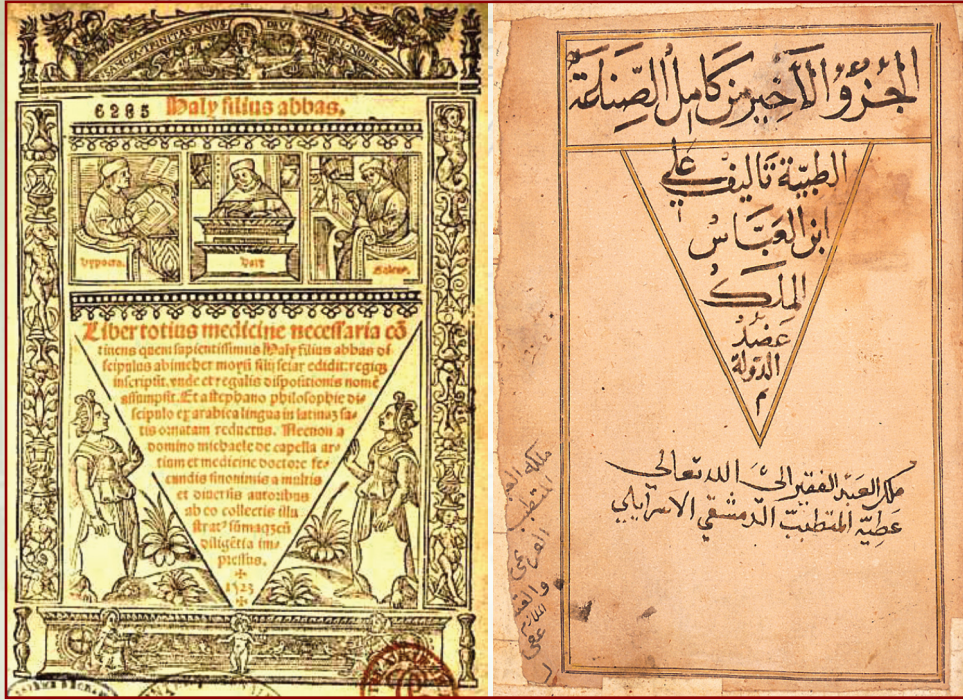 SANCTA TRINITAS VNVS DEVS MISERERE NOBIS
6285
Haly filius abbas.
Hypocra.
Haly
Galenus.
Liber totius medicine necessaria cō
tinens quem sapientissimus Haly filius abbas di
scipulus abimeher moysi filii seiar edidit: regiqʒ
inscripsit. vnde et regalis dispositionis nomē
assumpsit. Et a stephano philosophie di
scipulo ex arabica lingua in latinaʒ sa
tis ornatam reductus. Necnon a
domino michaele de capella ar
tium et medicine doctore fe
cundis sinonimis a multis
et diuersis autoribus
ab eo collectis illu
strat
diligētia im
pressus.
1523
الجزؤ الأخير من كامل الصِّناعة
الطبيّة تأليف علي
ابن العَبَّاسْ
الملك
عضدُ
الدّولة
م
ملك العبد الفقير إلى الله تعالى
عطيّه المتطبب الدمشقي الاسرايلي